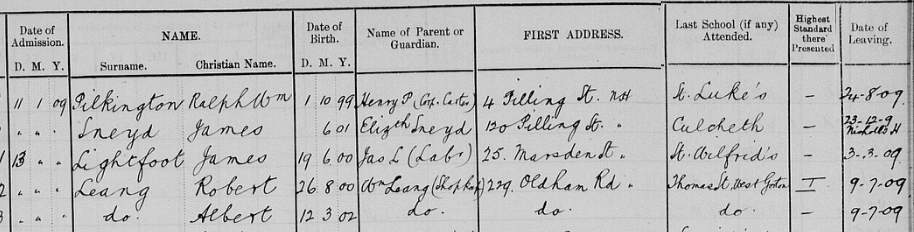 Date of Admission. NAME. Date of Birth. Name of Parent or Guardian. FIRST ADDRESS. Last School (if any) Attended. Highest Standard there Presented Date of Leaving.
D. M. Y. Surname. Christian Name. D. M. Y.
11 1 09 Pilkington Ralph Wm 1 10 99 Henry P (Cop. Carter) 4 Pilling St. NH St. Luke's – 24-8-09
" " " Sneyd James 6 01 Elizth Sneyd 130 Pilling St. " Culcheth – 23-12-9
13 " " Lightfoot James 19 6 00 Jas L (Labr) 25 Marsden St. " St. Wilfrid's – 3-3-09
" " " Leang Robert 26 8 00 Wm Leang (Shopkp) 229 Oldham Rd " Thomas St. West Gorton I 9-7-09
" " " do. Albert 12 3 02 do. do. do. – 9-7-09